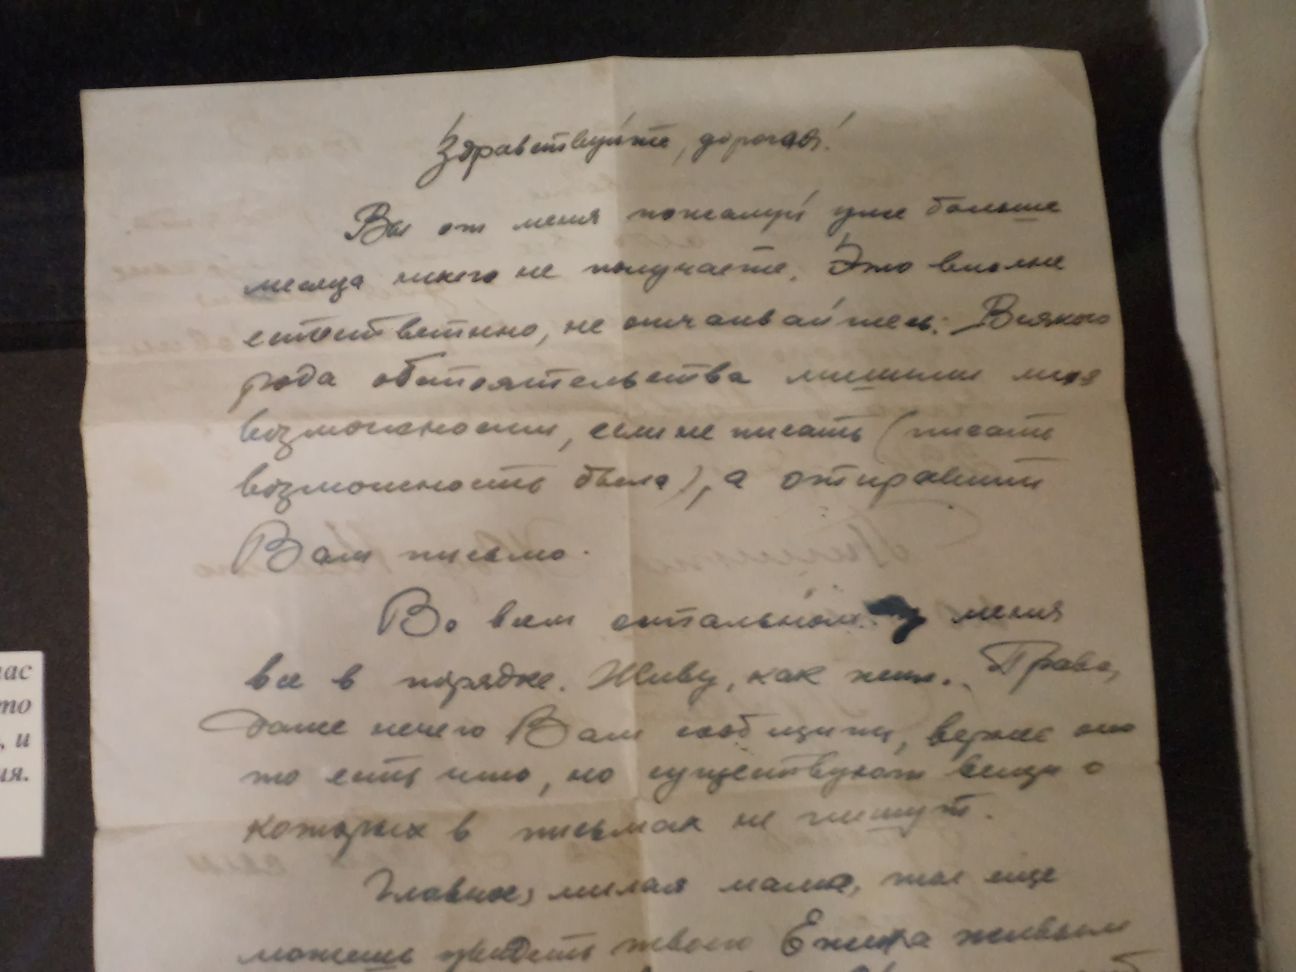 Здравствуйте, дорогая!
Вы от меня пожалуй уже больше
месяца ничего не получаете. Это вполне
естественно, не отчаивайтесь. Всякого
рода обстоятельства лишили меня
возможности, если не писать (писать
возможность была), а отправить
Вам письмо.
Во всем остальном у меня
все в порядке. Живу, как жил. Право,
даже нечего Вам сообщить, вернее оно
то есть что, но существуют вещи о
которых в письмах не пишут.
Главное, милая мама, ты еще
можешь увидеть твоего живым
нас
то
, и
ия.